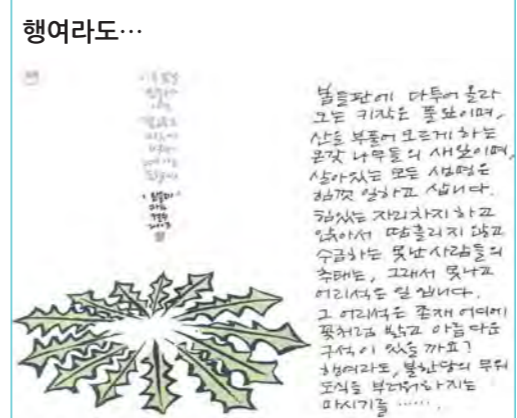 행여라도…
봄들판에 다투어 올라
오는 키작은 풀잎이며,
산을 부풀어 오르게 하는
온갖 나무들의 새잎이며,
살아있는 모든 생명은
힘껏 일하고 삽니다.
힘있는 자리 차지하고
앉아서 땀흘리지 않고
수금하는 못난 사람들의
추태는, 그래서 못나고
어리석은 일입니다.
그 어리석은 존재 어디에
꽃처럼 밝고 아름다운
구석이 있을까요?
행여라도, 불한당의 무위
도식을 부러워하지는
마시기를 ……